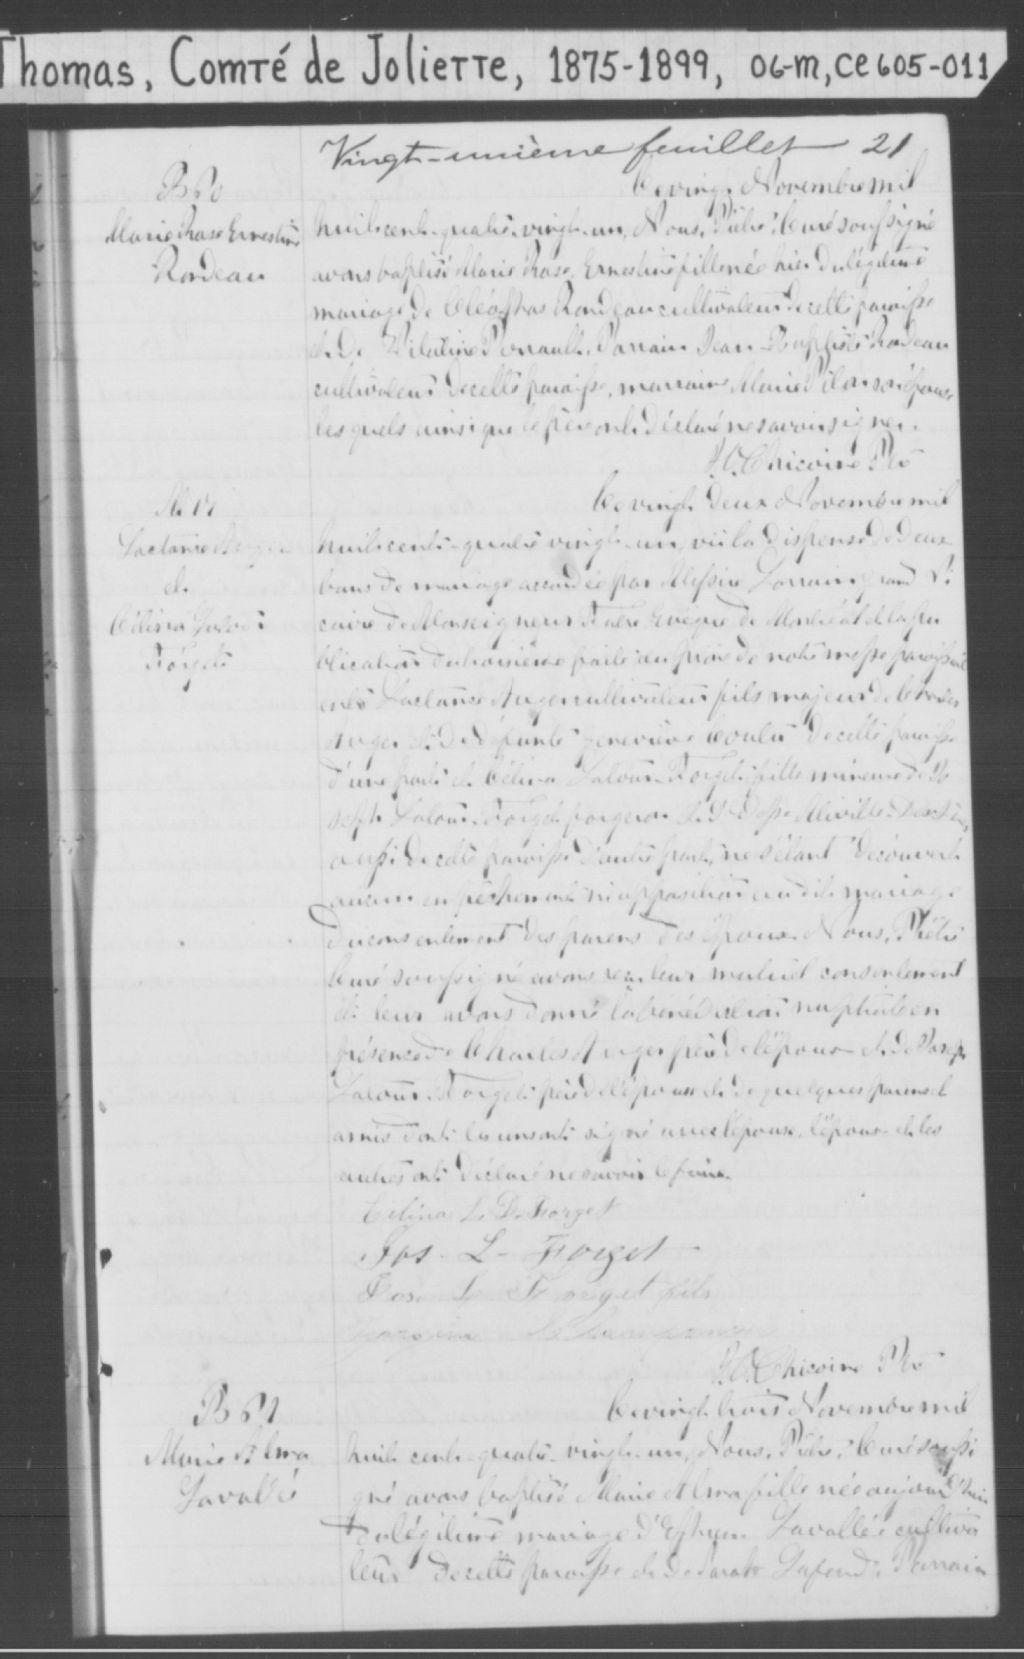 Thomas, Comté de Joliette, 1875-1899, 06-M, CE605-011
Vingt-unième feuillet 21
B 60
Marie Rose Ernestine
Rondeau
Le vingt Novembre mil
huit cent quatre vingt-un, Nous, Prêtre, Curé soussigné
avons baptisé Marie Rose Ernestine fille née hier du légitime
mariage de Cléophas Rondeau cultivateur de cette paroisse
et de Perrault. Parrain Jean-Baptiste Rondeau
cultivateur de cette paroisse, marraine Marie Pilon son épouse
lesquels ainsi que le père ont déclaré ne savoir signer.
Chicoine Ptre
M. 17
Lactance Auger
et
Célina Latour
Forget
Le vingt deux Novembre mil
huit cent quatre vingt-un, vu la dispense de deux
bans de mariage accordée par Messire Lorrain grand Vi
caire de Monseigneur Fabre Evêque de Montréal et la pu
blication du troisième faite au prône de notre messe paroissiale
entre Lactance Auger cultivateur fils majeur de Charles
Auger et de défunte Geneviève de cette paroisse
d'une part et Célina Latour Forget fille mineure de Jo
seph Latour Forget forgeron et de
aussi de cette paroisse d'autre part, ne s'étant découvert
aucun empêchement ni opposition au dit mariage
du consentement des parens des époux Nous, Prêtre
Curé soussigné avons reçu leur mutuel consentement
et leur avons donné la bénédiction nuptiale en
présence de Charles Auger père de l'époux et de Joseph
Latour Forget père de l'épouse et de quelques parens et
amis dont les uns ont signé avec l'épouse, l'époux et les
autres ont déclaré ne savoir le faire.
Célina L. D. Forget
Jos. L. Forget
L. Forget fils
Chicoine Ptre
B 61
Marie Alma
Lavallée
Le vingt trois Novembre mil
huit cent quatre vingt-un, Nous, Prêtre, Curé soussi
gné avons baptisé Marie Alma fille née aujourd'hui
du légitime mariage d'Ephrem Lavallée cultiva
teur de cette paroisse et de Parrain